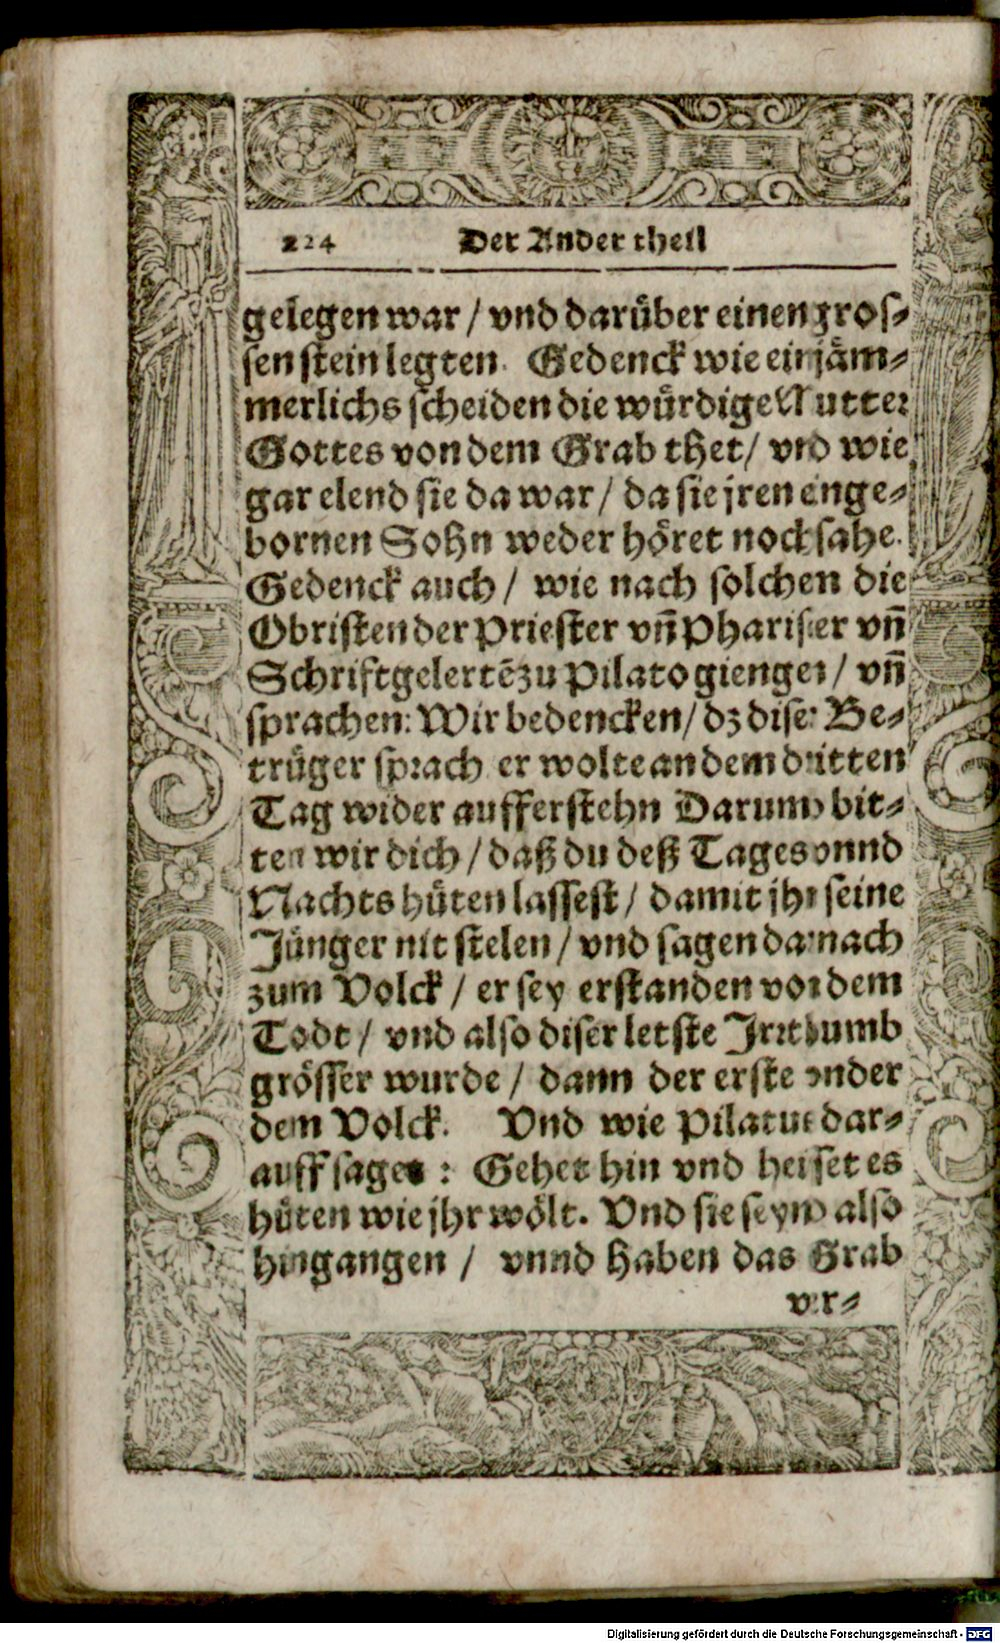 224 Der Ander theil
gelegen war / vnd darüber einen gros⸗
sen stein legten. Gedenck wie ein jäm⸗
merlichs scheiden die würdige Mutter
Gottes von dem Grab thet / vnd wie
gar elend sie da war / da sie jren einge⸗
bornen Sohn weder höret noch sahe.
Gedenck auch / wie nach solchen die
Obristen der Priester vñ Phariseer vñ
Schriftgelertē zu Pilato giengen / vñ
sprachen: Wir bedencken / dz diser Be⸗
trüger sprach er wolte an dem dritten
Tag wider aufferstehn Darumb bit⸗
ten wir dich / daß du deß Tages vnnd
Nachts hüten lassest / damit jhn seine
Jünger nit stelen / vnd sagen darnach
zum Volck / er sey erstanden von dem
Todt / vnd also diser letste Jrrthumb
grösser wurde / dann der erste vnder
dem Volck. Vnd wie Pilatus dar⸗
auff saget : Gehet hin vnd heisset es
hüten wie jhr wölt. Vnd sie seynd also
hingangen / vnnd haben das Grab
ver⸗
Digitalisierung gefördert durch die Deutsche Forschungsgemeinschaft - DFG